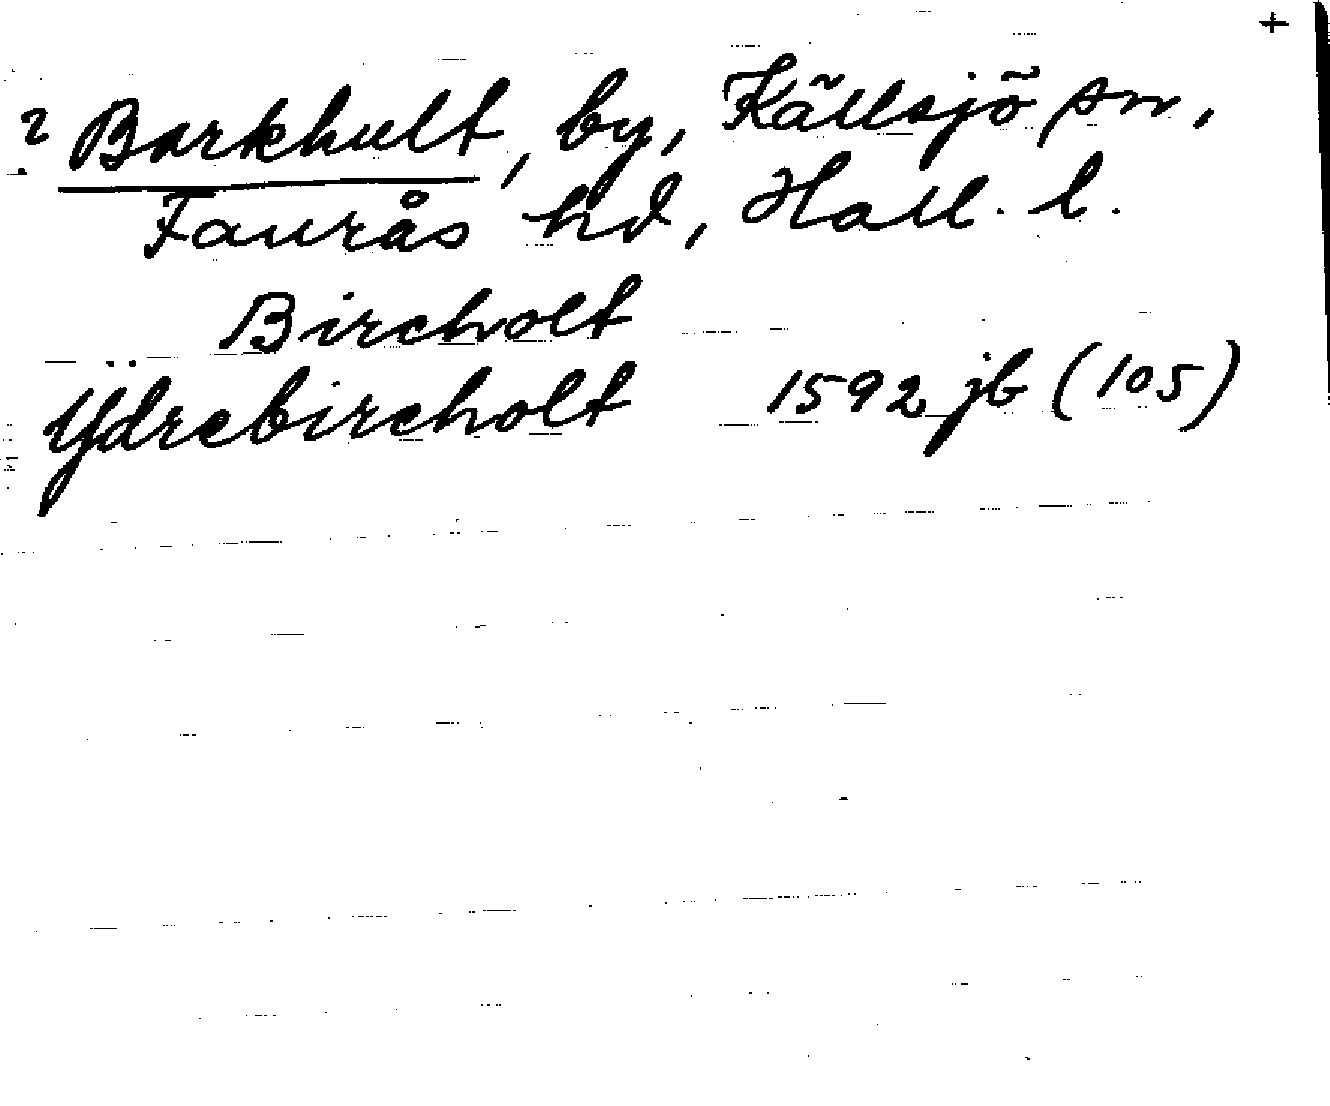 +
? Barkhult, by, Källsjö sn,
Faurås hd, Hall. l.
Bircholt
Ydrebircholt 1592 jb (105)